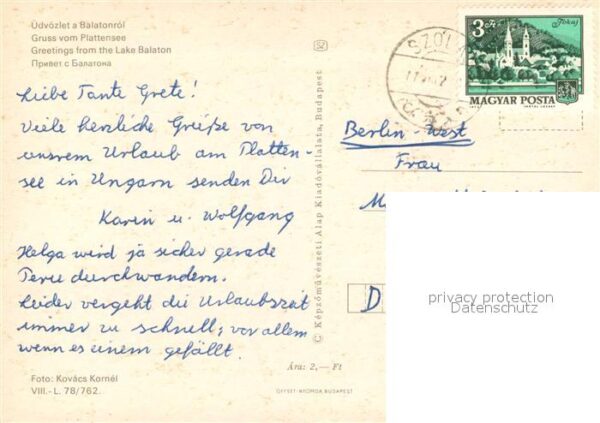 Üdvözlet a Balatonról
Gruss vom Plattensee
Greetings from the Lake Balaton
Привет с Балатона
Liebe Tante Grete!
Viele herzliche Grüße von
unsrem Urlaub am Platten-
see in Ungarn senden Dir
Karin u. Wolfgang
Helga wird ja sicher gerade
Peru durchwandern.
Leider vergeht die Urlaubszeit
immer zu schnell, vor allem
wenn es einem gefällt.
Foto: Kovács Kornél
VIII.-L. 78/762.
© Képzőművészeti Alap Kiadóvállalata, Budapest
Ára: 2,— Ft
OFFSET-NYOMDA BUDAPEST
3 Ft
Tokaj
MAGYAR POSTA
Berlin-West
Frau
M
D
privacy protection
Datenschutz